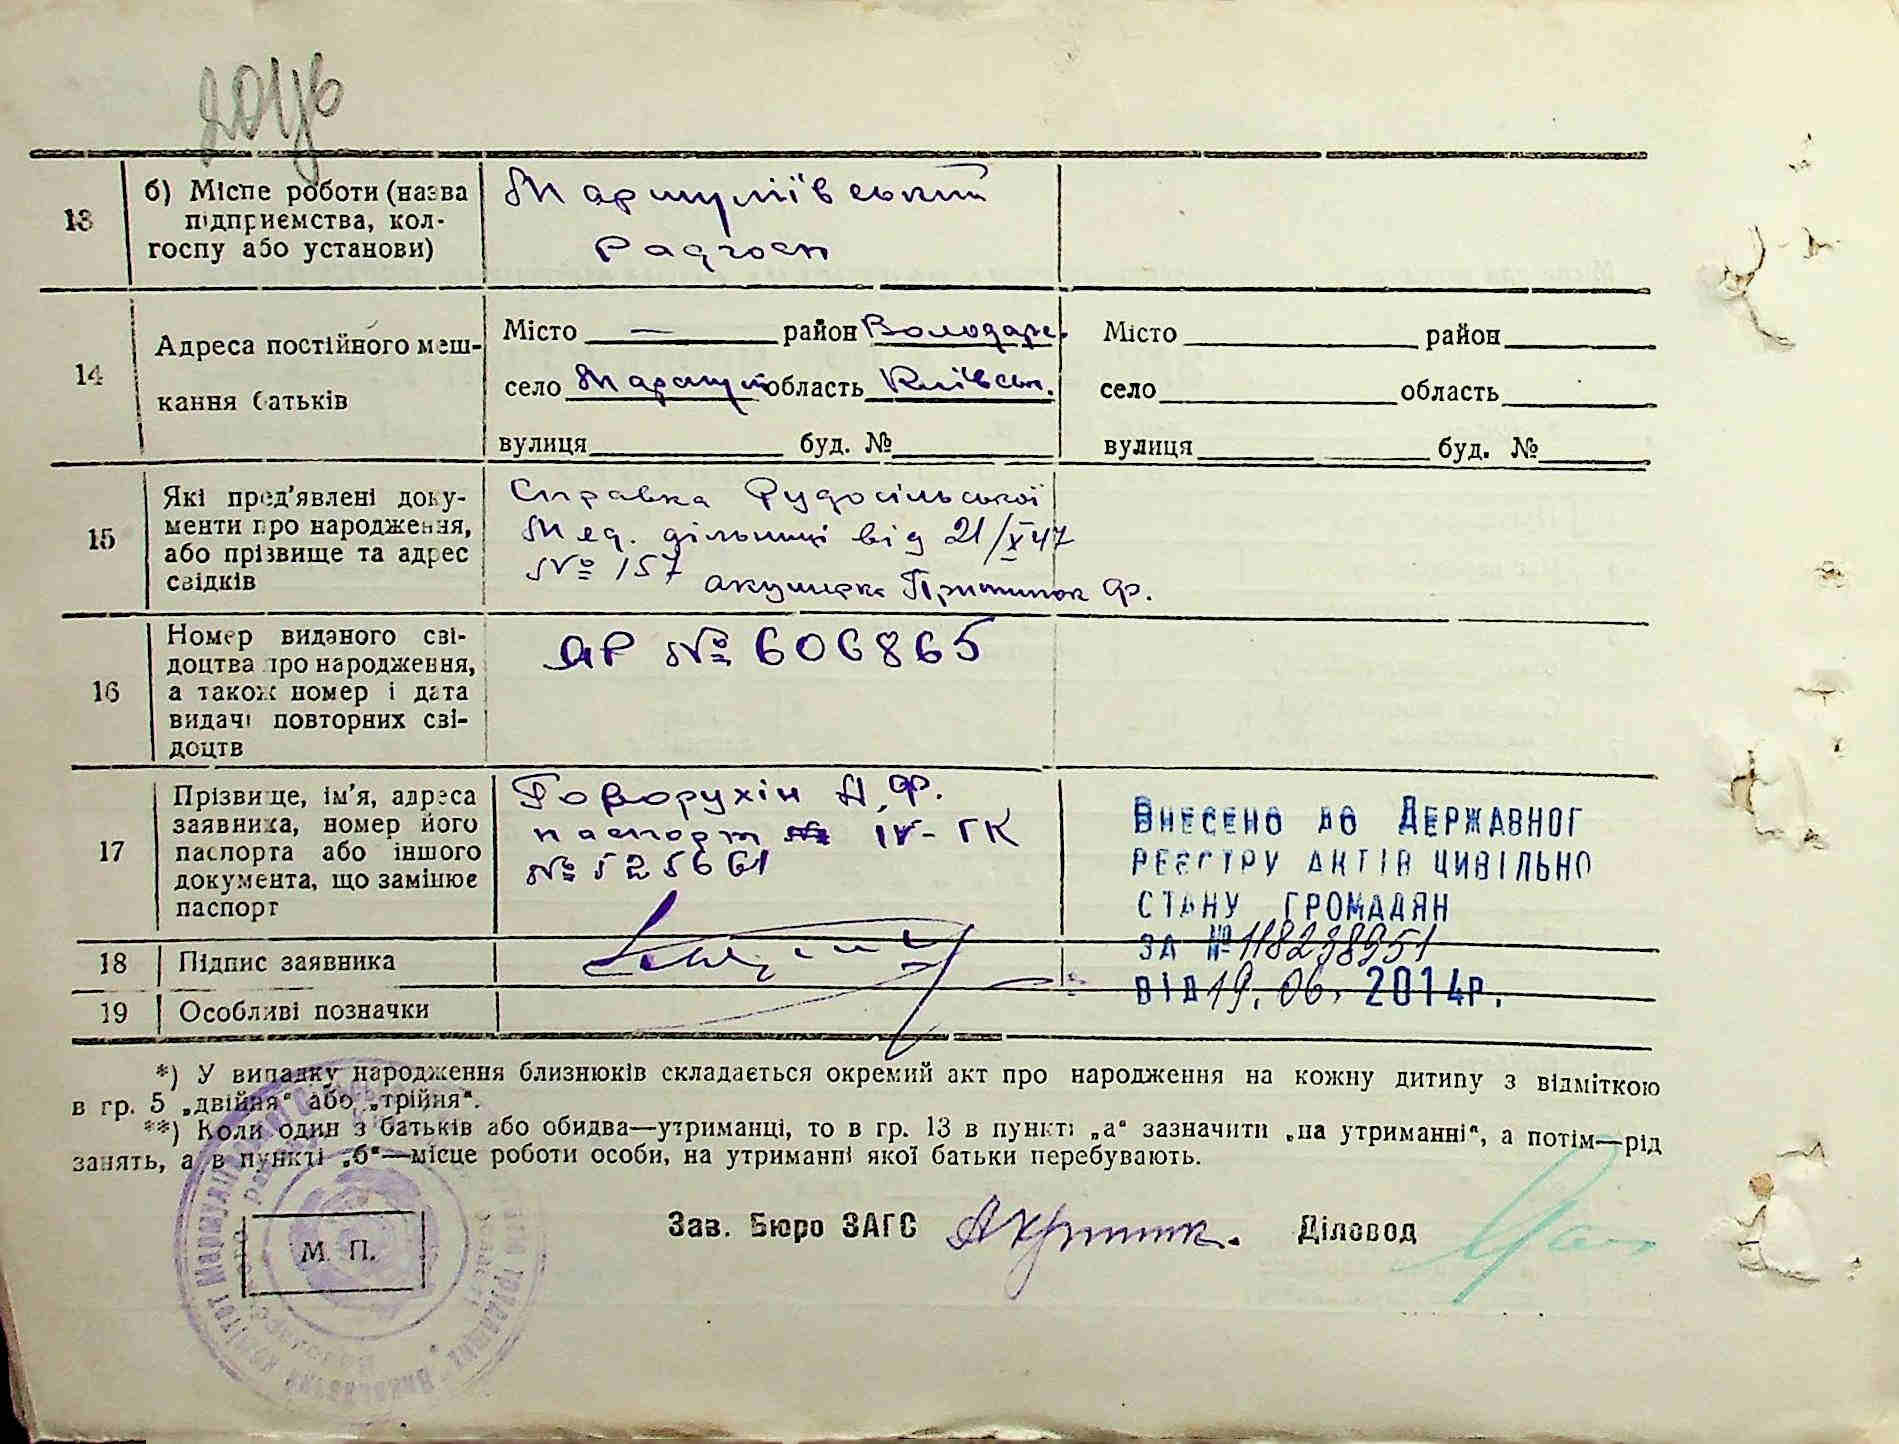 13
б) Місце роботи (назва
підприємства, кол-
госпу або установи)
Мармуліївський
Радгосп
14
Адреса постійного меш-
кання батьків
Місто — район Володарс.
село Мармул область Київськ.
вулиця буд. №
Місто район
село область
вулиця буд. №
15
Які пред'явлені доку-
менти про народження,
або прізвище та адрес
свідків
Справка Рудосільської
Мед. дільниці від 21/X 47
№ 157 акушерка Притипок Ф.
16
Номер виданого сві-
доцтва про народження,
а також номер і дата
видачі повторних сві-
доцтв
ЯР № 606865
17
Прізвище, ім'я, адреса
заявника, номер його
паспорта або іншого
документа, що замінює
паспорт
Говорухін А.Ф.
паспорт IV-ГК
№ 525661
Внесено до Державног
реєстру актів цивільно
стану громадян
за № 118238951
від 19.06. 2014р.
18
Підпис заявника
19
Особливі позначки
*) У випадку народження близнюків складається окремий акт про народження на кожну дитину з відміткою
в гр. 5 „двійня“ або „трійня“.
**) Коли один з батьків або обидва—утриманці, то в гр. 13 в пункті „а“ зазначити „на утриманні“, а потім—рід
занять, а в пункті „б“—місце роботи особи, на утриманні якої батьки перебувають.
Зав. Бюро ЗАГС
Діловод
М. П.